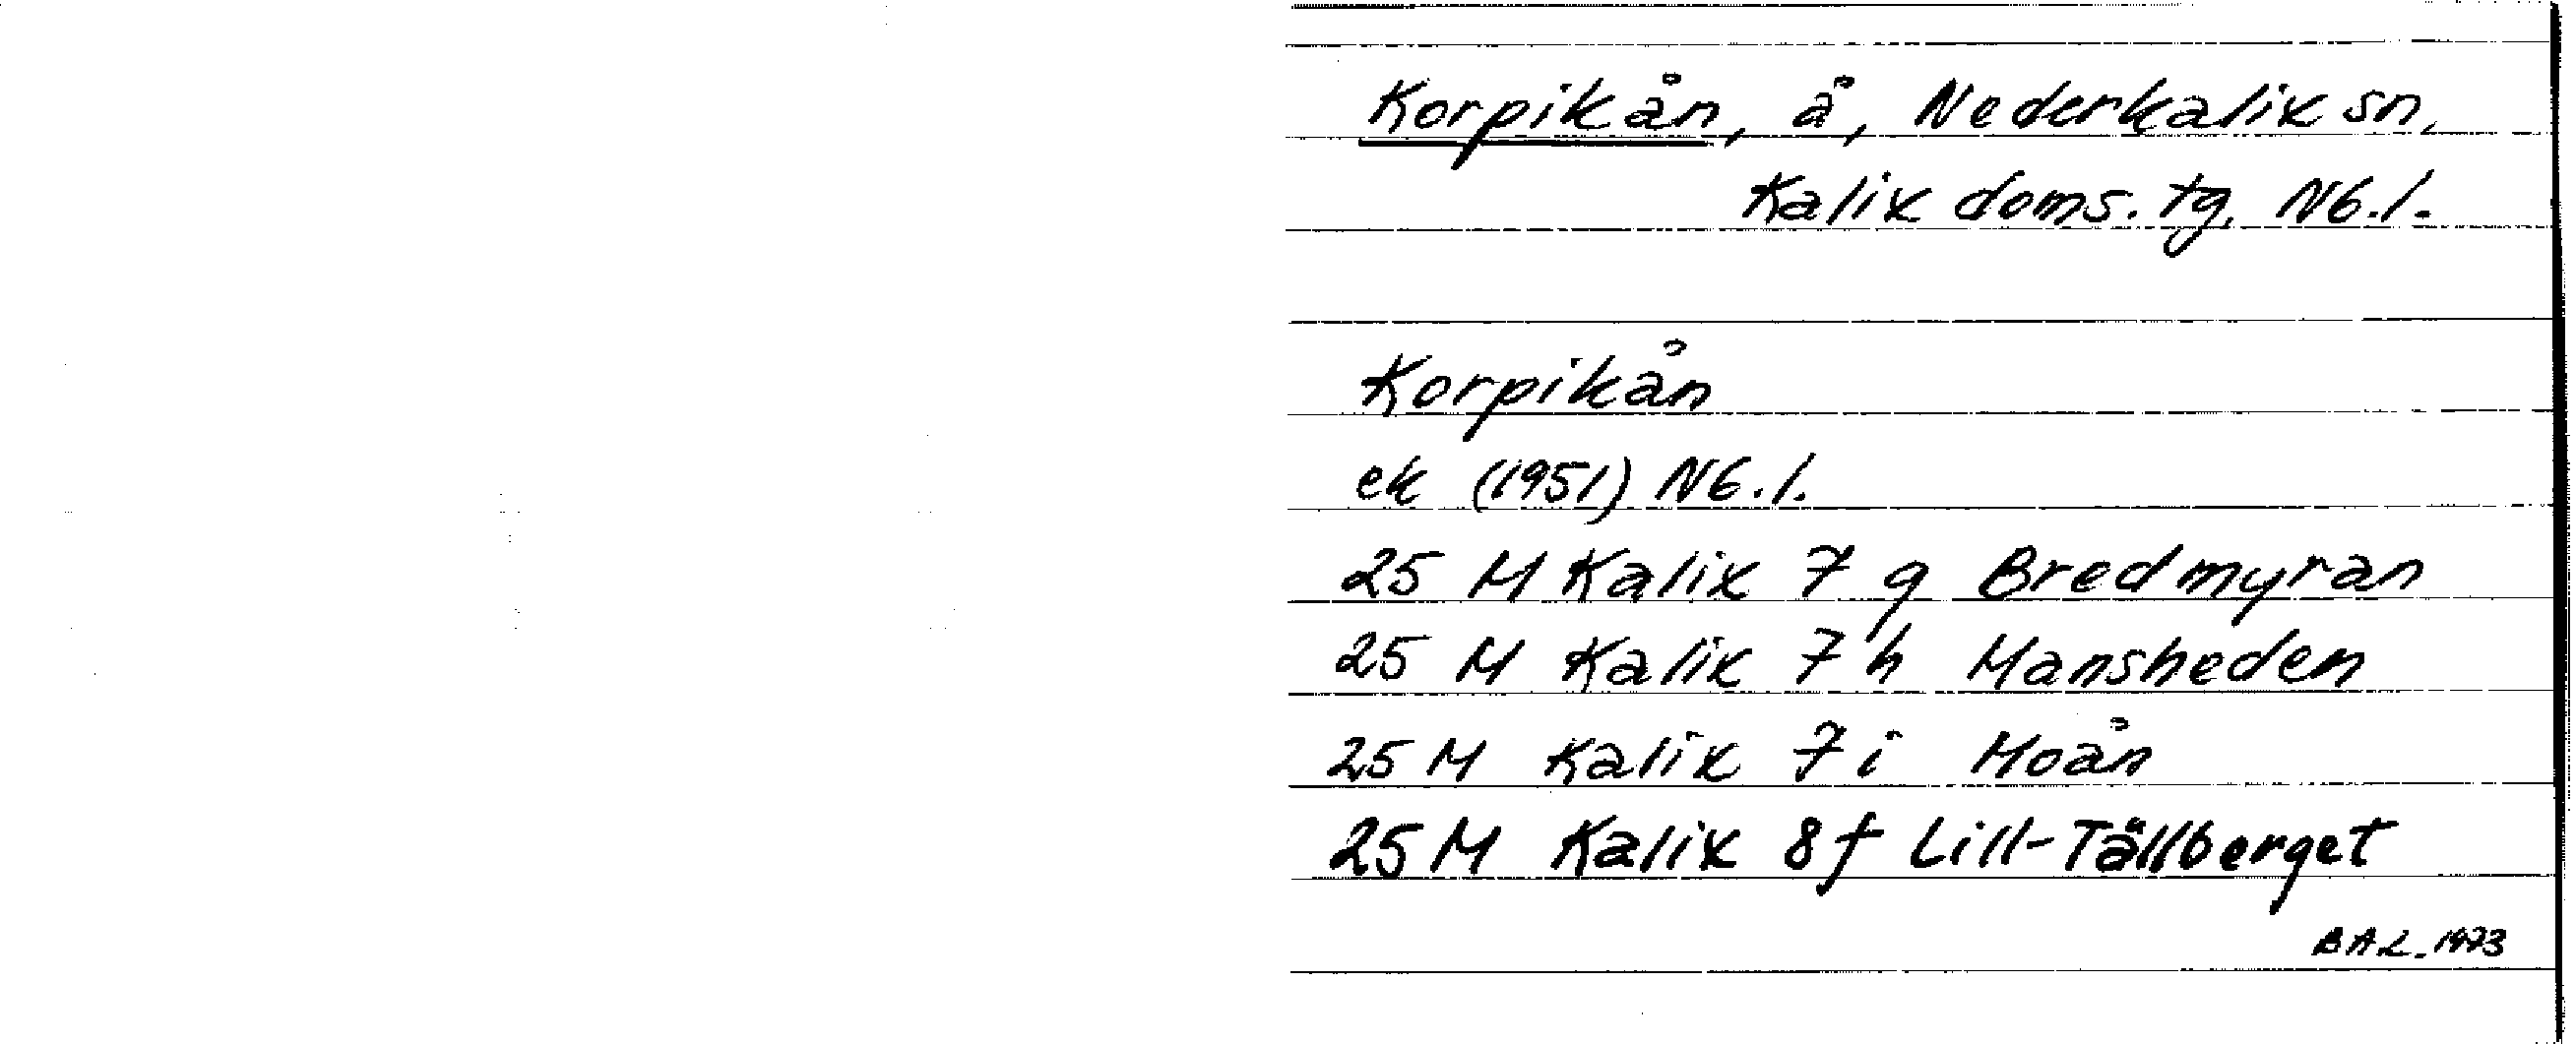 Korpikån, å, Nederkalix sn,
Kalix doms. tg, Nb.l.
Korpikån
ek (1951) Nb.l.
25 M Kalix 7 g Bredmyran
25 M Kalix 7 h Mansheden
25 M Kalix 7 i Moån
25 M Kalix 8 f Lill-Tällberget
BAL 1973